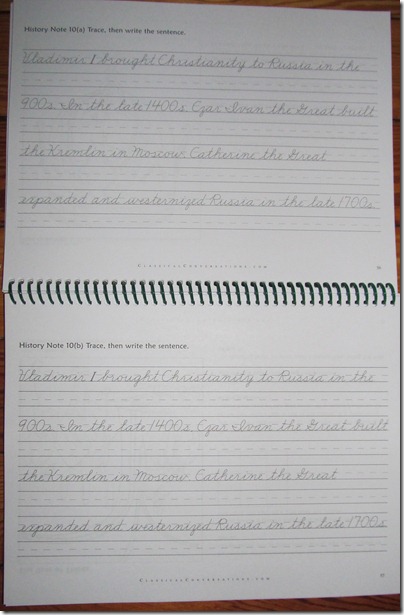 History Note 10(a) Trace, then write the sentence.
Vladimir I brought Christianity to Russia in the
900s. In the late 1400s, Czar Ivan the Great built
the Kremlin in Moscow. Catherine the Great
expanded and westernized Russia in the late 1700s.
CLASSICALCONVERSATIONS.COM
History Note 10(b) Trace, then write the sentence.
Vladimir I brought Christianity to Russia in the
900s. In the late 1400s, Czar Ivan the Great built
the Kremlin in Moscow. Catherine the Great
expanded and westernized Russia in the late 1700s.
CLASSICALCONVERSATIONS.COM